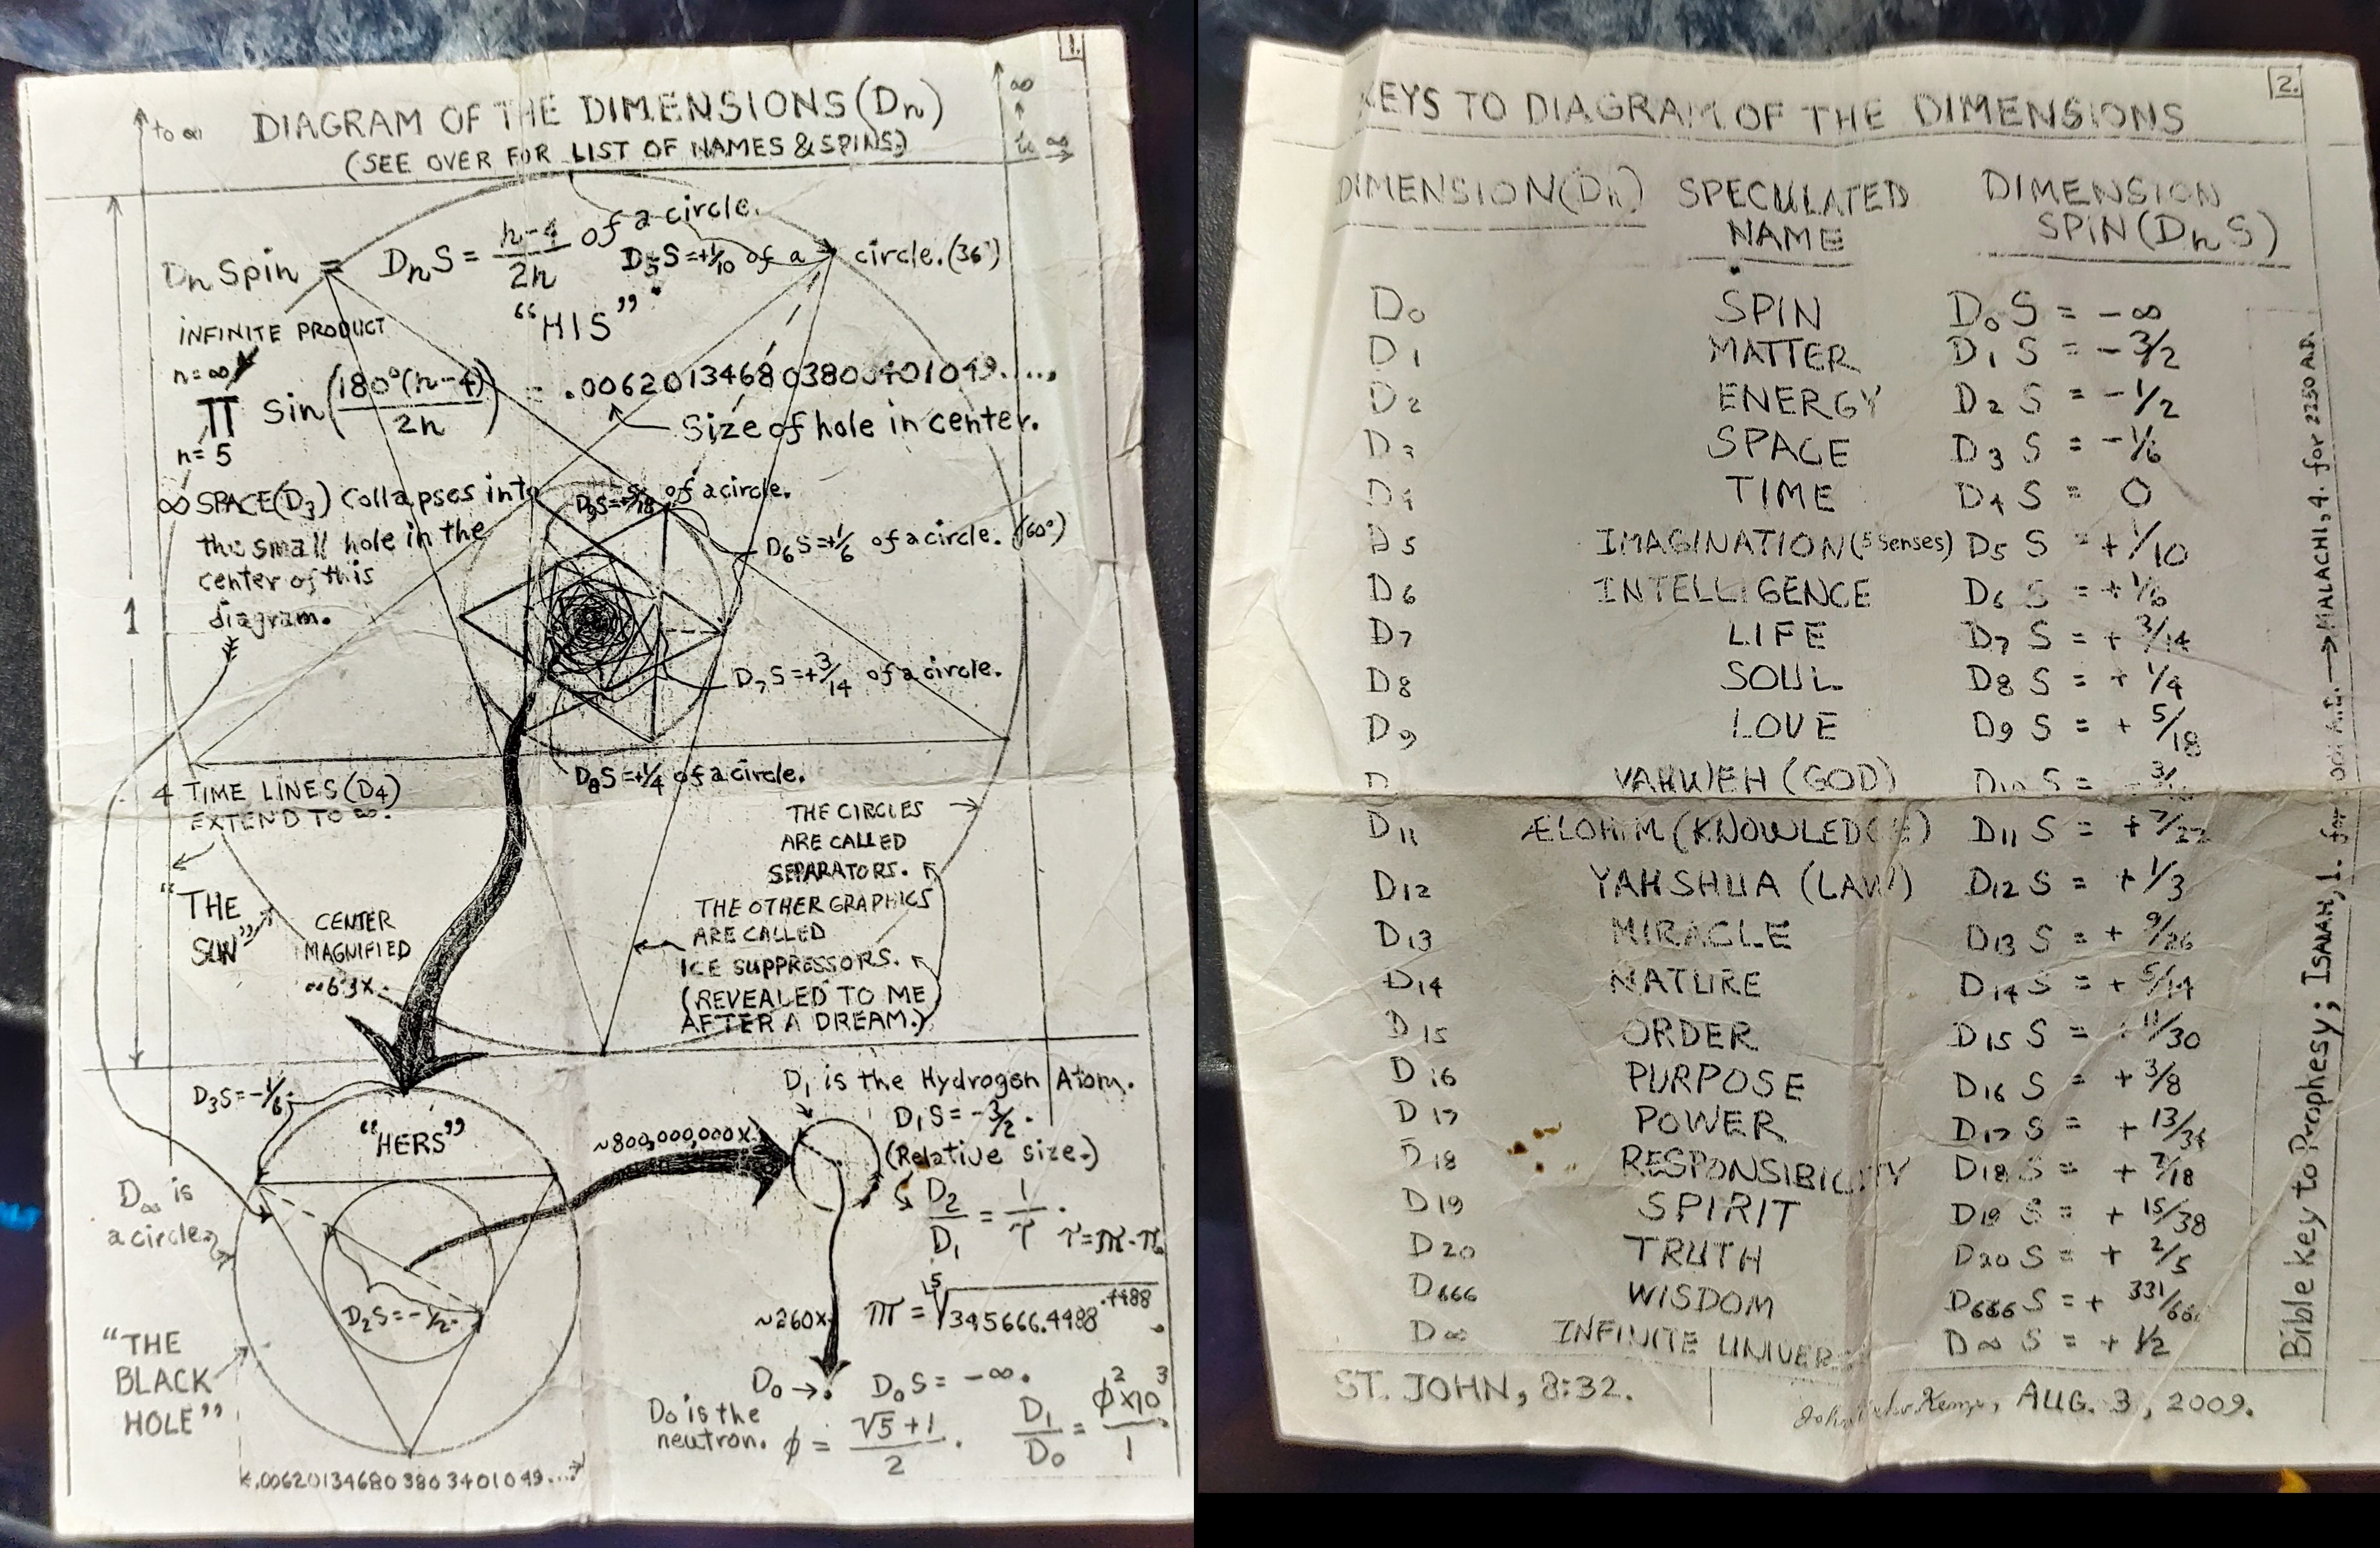 1.
to ∞
DIAGRAM OF THE DIMENSIONS (Dn)
(SEE OVER FOR LIST OF NAMES & SPINS.)
∞
to ∞
Dn Spin = DnS = n-4/2n of a circle.
D5S=+1/10 of a circle. (36°)
"HIS"
INFINITE PRODUCT
n=∞
π Sin(180°(n-4)/2n) = .00620134680380
n=5
Size of hole in center.
∞ SPACE(D3) Collapses into
the small hole in the
center of this
diagram.
D9S=+5/18 of a circle.
D6S=+1/6 of a circle. (60°)
1
D7S=+3/14 of a circle.
D8S=+1/4 of a circle.
4 TIME LINES (D4)
EXTEND TO ∞.
THE CIRCLES
ARE CALLED
SEPARATORS.
THE OTHER GRAPHICS
ARE CALLED
ICE SUPPRESSORS.
(REVEALED TO ME
AFTER A DREAM.)
"THE
SUN"
CENTER
MAGNIFIED
~63X.
D3S=-1/6.
"HERS"
~800,000,000X
D1 is the Hydrogen Atom.
D1S=-3/2.
(Relative size.)
D2/D1 = 1/τ.
D∞ is
a circle.
D2S=-1/2.
"THE
BLACK
HOLE"
~260X
D0→. D0S=-∞.
D0 is the
neutron. ϕ = √5+1/2. D1/D0 = ϕ²x10³/1
.006201346803803401049...
2.
KEYS TO DIAGRAM OF THE DIMENSIONS
DIMENSION(Dn) SPECULATED NAME DIMENSION SPIN(DnS)
D0 SPIN D0 S = -∞
D1 MATTER D1 S = -3/2
D2 ENERGY D2 S = -1/2
D3 SPACE D3 S = -1/6
D4 TIME D4 S = 0
D5 IMAGINATION (5 Senses) D5 S = +1/10
D6 INTELLIGENCE D6 S = +1/6
D7 LIFE D7 S = + 3/14
D8 SOUL D8 S = + 1/4
D9 LOVE D9 S = + 5/18
YAHWEH (GOD) D10 S =
D11 ÆLOHIM (KNOWLEDGE) D11 S = + 7/22
D12 YAHSHUA (LAW) D12 S = + 1/3
D13 MIRACLE D13 S = + 9/26
D14 NATURE D14 S = + 5/14
D15 ORDER D15 S = + 11/30
D16 PURPOSE D16 S = + 3/8
D17 POWER D17 S = + 13/34
D18 RESPONSIBILITY D18 S = + 7/18
D19 SPIRIT D19 S = + 15/38
D20 TRUTH D20 S = + 2/5
D666 WISDOM D666 S = +
D∞ INFINITE D∞ S = + 1/2
ST. JOHN, 8:32.
AUG. 3, 2009.
Bible key to Prophesy; ISAIAH, 1. for A.D. → MALACHI, 4. for 2250 A.D.